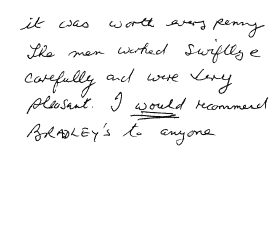 it was worth every penny
The men worked swiftly &
carefully and were very
pleasant. I would recommend
BRADLEY's to anyone